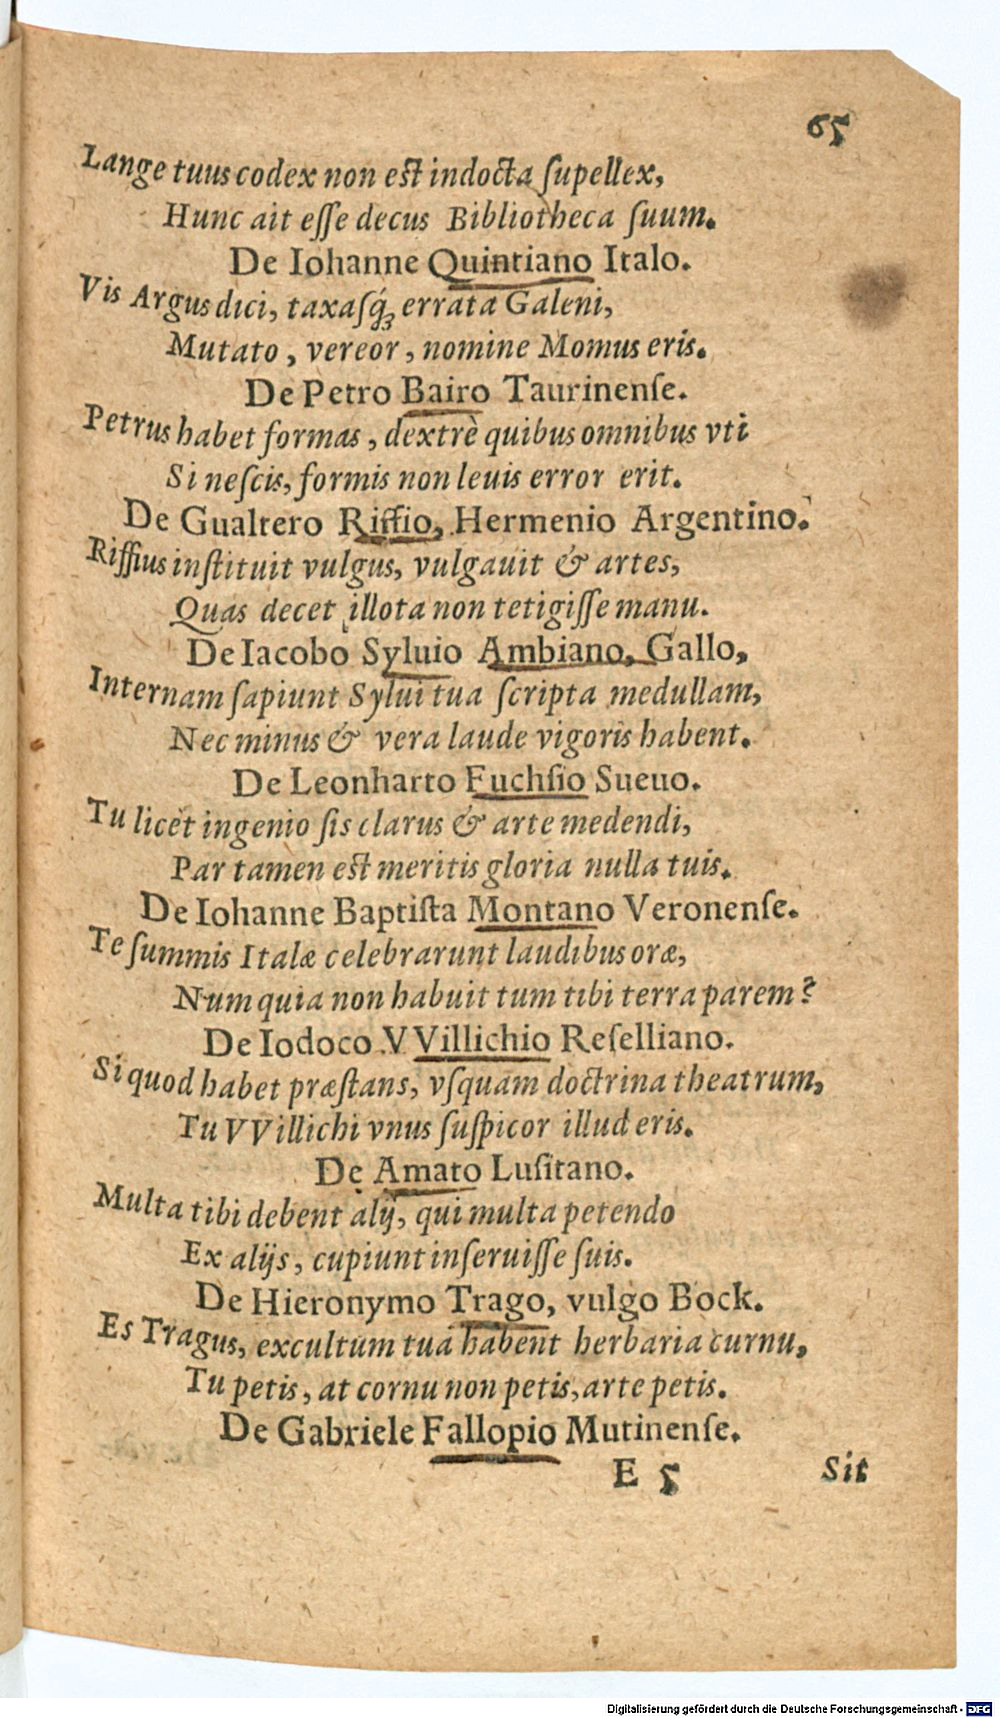 65
Lange tuus codex non est indocta ſupellex,
Hunc ait eſſe decus Bibliotheca ſuum.
De Iohanne Quintiano Italo.
Vis Argus dici, taxaſq́ꝫ errata Galeni,
Mutato, vereor, nomine Momus eris.
De Petro Bairo Taurinenſe.
Petrus habet formas, dextrè quibus omnibus vti
Si neſcis, formis non leuis error erit.
De Gualtero Riffio, Hermenio Argentino.
Riffius inſtituit vulgus, vulgauit & artes,
Quas decet illota non tetigiſſe manu.
De Iacobo Syluio Ambiano, Gallo,
Internam ſapiunt Sylui tua ſcripta medullam,
Nec minus & vera laude vigoris habent.
De Leonharto Fuchſio Sueuo.
Tu licèt ingenio ſis clarus & arte medendi,
Par tamen est meritis gloria nulla tuis.
De Iohanne Baptiſta Montano Veronenſe.
Te ſummis Italæ celebrarunt laudibus oræ,
Num quia non habuit tum tibi terra parem?
De Iodoco VVillichio Reſelliano.
Si quod habet præſtans, vſquam doctrina theatrum,
Tu VVillichi vnus ſuſpicor illud eris.
De Amato Luſitano.
Multa tibi debent alij, qui multa petendo
Ex alijs, cupiunt inſeruiſſe ſuis.
De Hieronymo Trago, vulgo Bock.
Es Tragus, excultum tua habent herbaria curnu,
Tu petis, at cornu non petis, arte petis.
De Gabriele Fallopio Mutinenſe.
E 5 Sit
Digitalisierung gefördert durch die Deutsche Forschungsgemeinschaft - DFG